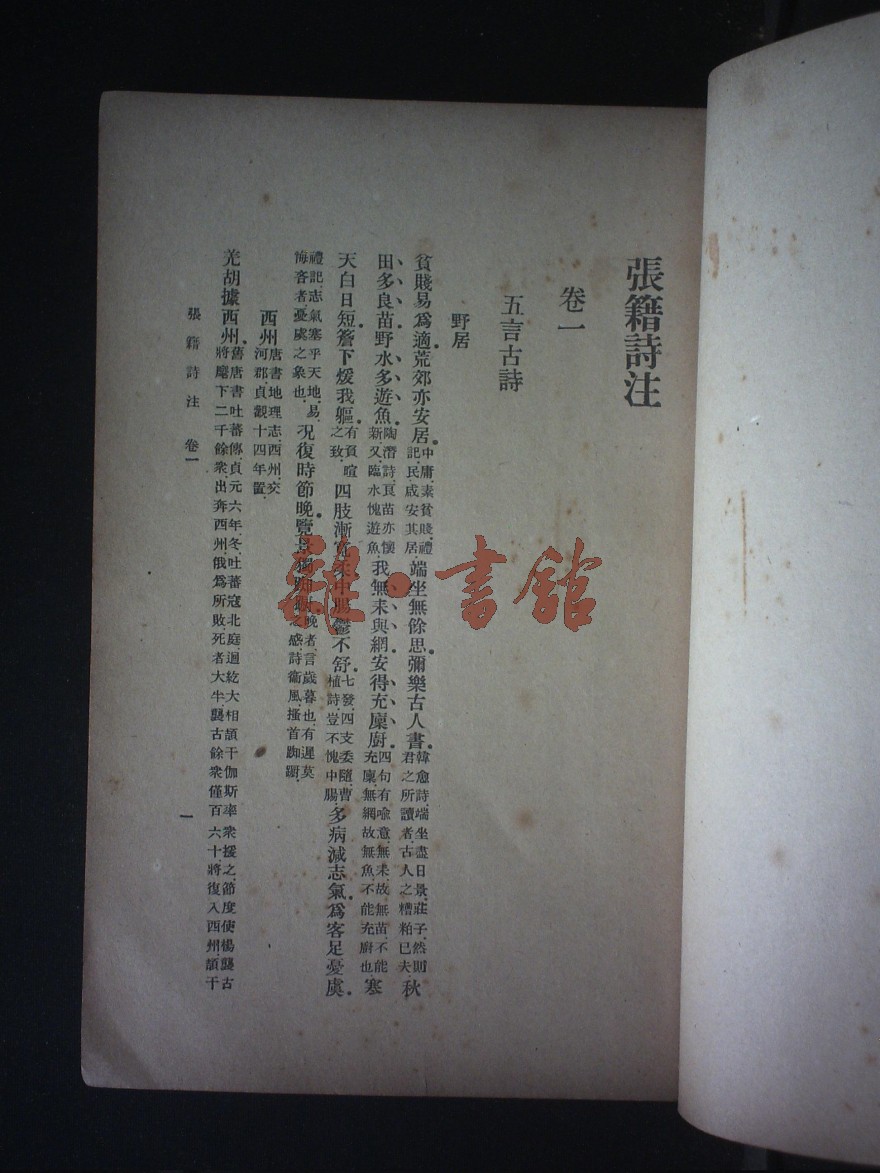 張籍詩注
卷一
五言古詩
野居
貧賤易爲適荒郊亦安居。中庸素貧賤、禮記、民咸安其居、端坐無餘思彌樂古人書。韓愈詩、端坐盡日景、莊子、然則君之所讀者古人之糟粕已夫、秋
田多良苗野水多遊魚。陶潛詩、良苗亦懷新、又、臨水愧遊魚、我無耒與網安得充廩廚。四句有喩意、無耒、故無苗不能充廩、無網故無魚、不能充廚也、寒
天白日短簷下煖我軀。有負暄之致、四肢漸寬柔中腸鬱不舒。七發、四支委隨、曹植詩、豈不愧中腸、多病減志氣爲客足憂虞。
禮記志氣塞乎天地、易、悔吝者、憂虞之象也、況復時節晚覽景獨踟躕。晚者、言歲暮也、有遲莫之感、詩衞風、搔首踟躕、
西州唐書地理志、西州、交河郡、貞觀十四年置、
羌胡據西州。舊唐書吐蕃傳、貞元六年、冬、吐蕃寇北庭、迴紇大相頡干伽斯率衆援之、節度使楊襲古將麾下二千餘衆、出奔西州、俄爲所敗、死者大半、襲古餘衆僅百六十、將復入西州、頡干
張籍詩注 卷一
一
雜·書館